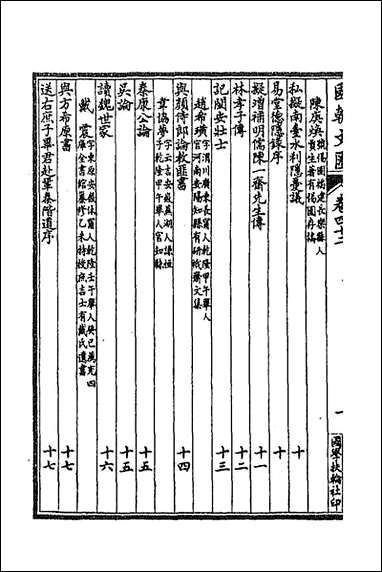 國朝文匯 卷四十二 一 國學扶輪社印
陳庚煥 號惕園福建長樂縣人貢生著有惕園存稿
私擬南臺水利隱憂議 十
易堂德隱錄序 十
擬增補明儒陳一齋先生傳 十一
林孝子傳 十二
記閩安壯士 十三
趙希璜 字渭川廣東長寧人乾隆甲午舉人官河南安陽知縣有研栰齋文集
與顏侍郎論救匪書 十四
韋協夢 字云吉安徽蕪湖人謙恒子乾隆甲午舉人官知縣
秦康公論 十五
吳論 十五
讀魏世家 十六
戴震 字東原安徽休寧人乾隆壬午舉人癸巳薦充四庫全書館纂修乙未特授庶吉士有戴氏遺書
與方希原書 十七
送右庶子畢君赴鞏秦階道序 十七